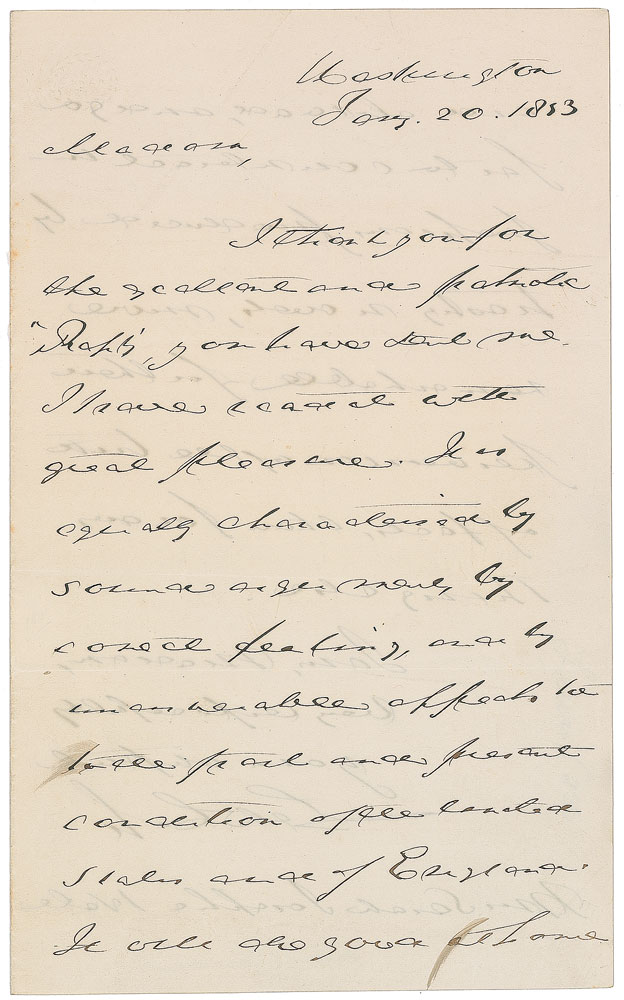 Washington
Jany. 20. 1853
Madam,
I thank you for
the excellent and patriotic
"Reply", you have sent me.
I have read it with
great pleasure. It is
equally characterised by
sound argument, by
correct feeling, and by
unanswerable appeals to
the past and present
condition of the United
States and of England.
It will do good at home